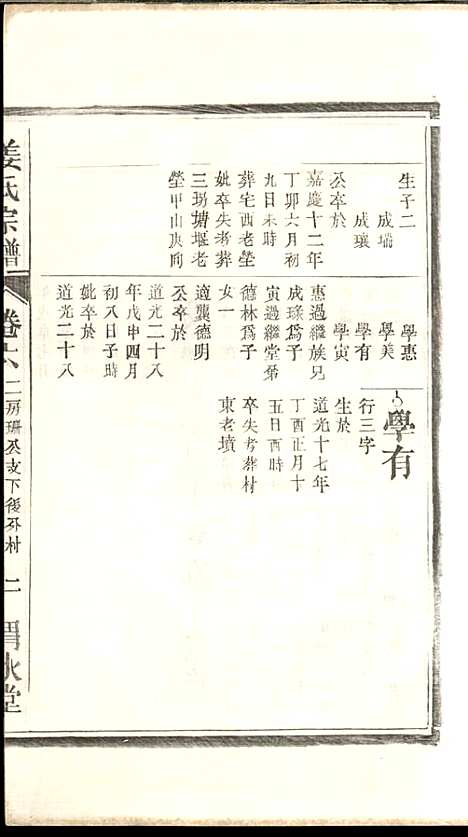 生子二
成瑞
成瓌
公卒於
嘉慶十二年
丁卯六月初
九日未時
葬宅西老塋
妣卒失考葬
三塲塘堰老
塋甲山庚向
學惠
學美
學有
學寅
惠過繼族兄
成璲爲子
寅過繼堂弟
德林爲子
女一
適龔德明
公卒於
道光二十八
年戊申四月
初八日子時
妣卒於
道光二十八
學有
行三字
生於
道光十七年
丁酉正月十
五日酉時
卒失考葬村
東老墳
姜氏宗譜
卷六
二房珊公支下後外村
二
渭水堂